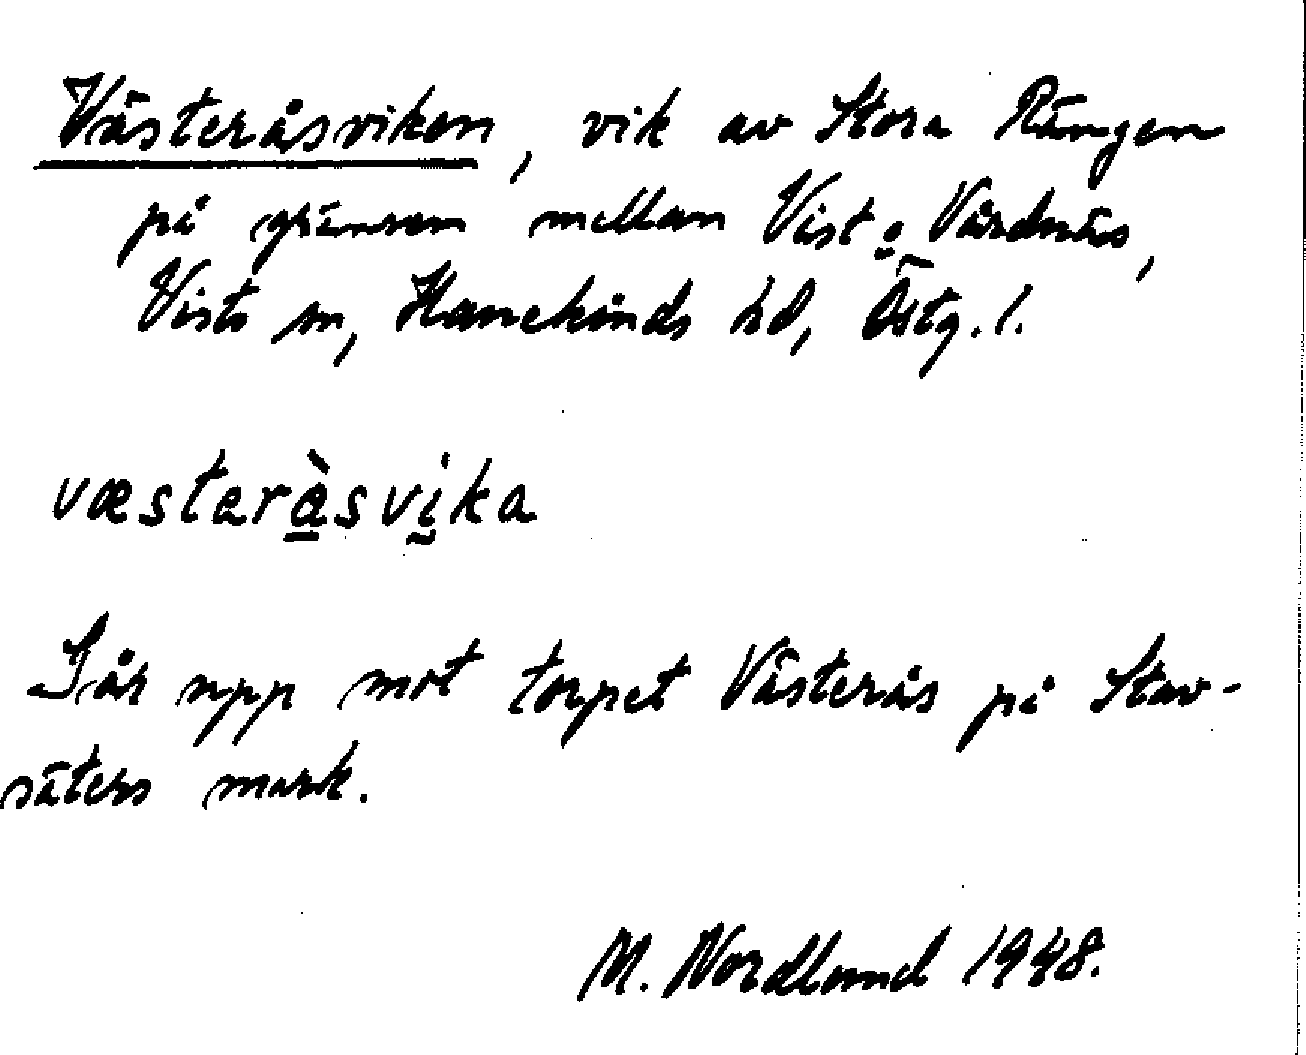 Västeråsviken, vik av Stora Rängen
på gränsen mellan Vist o Vårdnäs,
Vists sn, Hanekinds hd, Östg. l.
væstaràsvika
Går upp mot torpet Västerås på Stav-
säters mark.
M. Nordlund 1948.